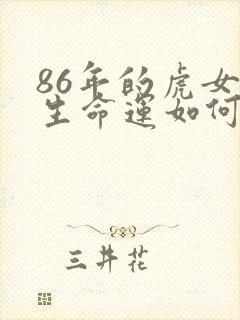 86年的虎女
生命运如何
三井花